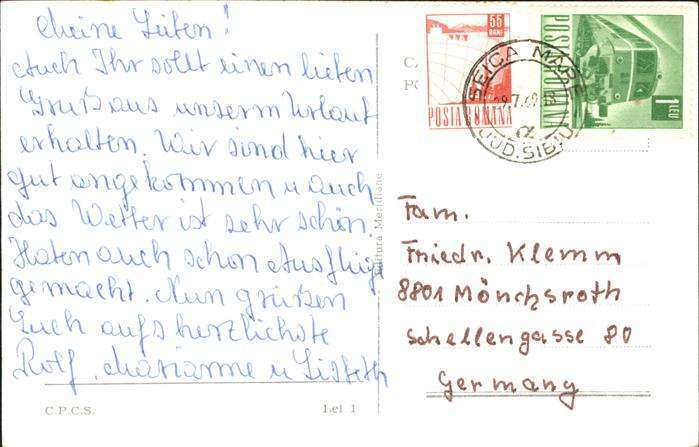 Meine Lieben!
Auch Ihr sollt einen lieben
Gruß aus unserm Urlaub
erhalten. Wir sind hier
gut angekommen u auch
das Wetter ist sehr schön.
Haben auch schon Ausflüge
gemacht. Nun grüßen
Euch aufs herzlichste
Rolf, Marianne u Lisbeth
C.P.C.S.
Lei 1
Editura Meridiane
55
BANI
POSTA ROMANA
POSTA
1 LEU
SEICA MARE
JUD. SIBIU
Fam.
Friedr. Klemm
8801 Mönchsroth
Schellengasse 80
Germany